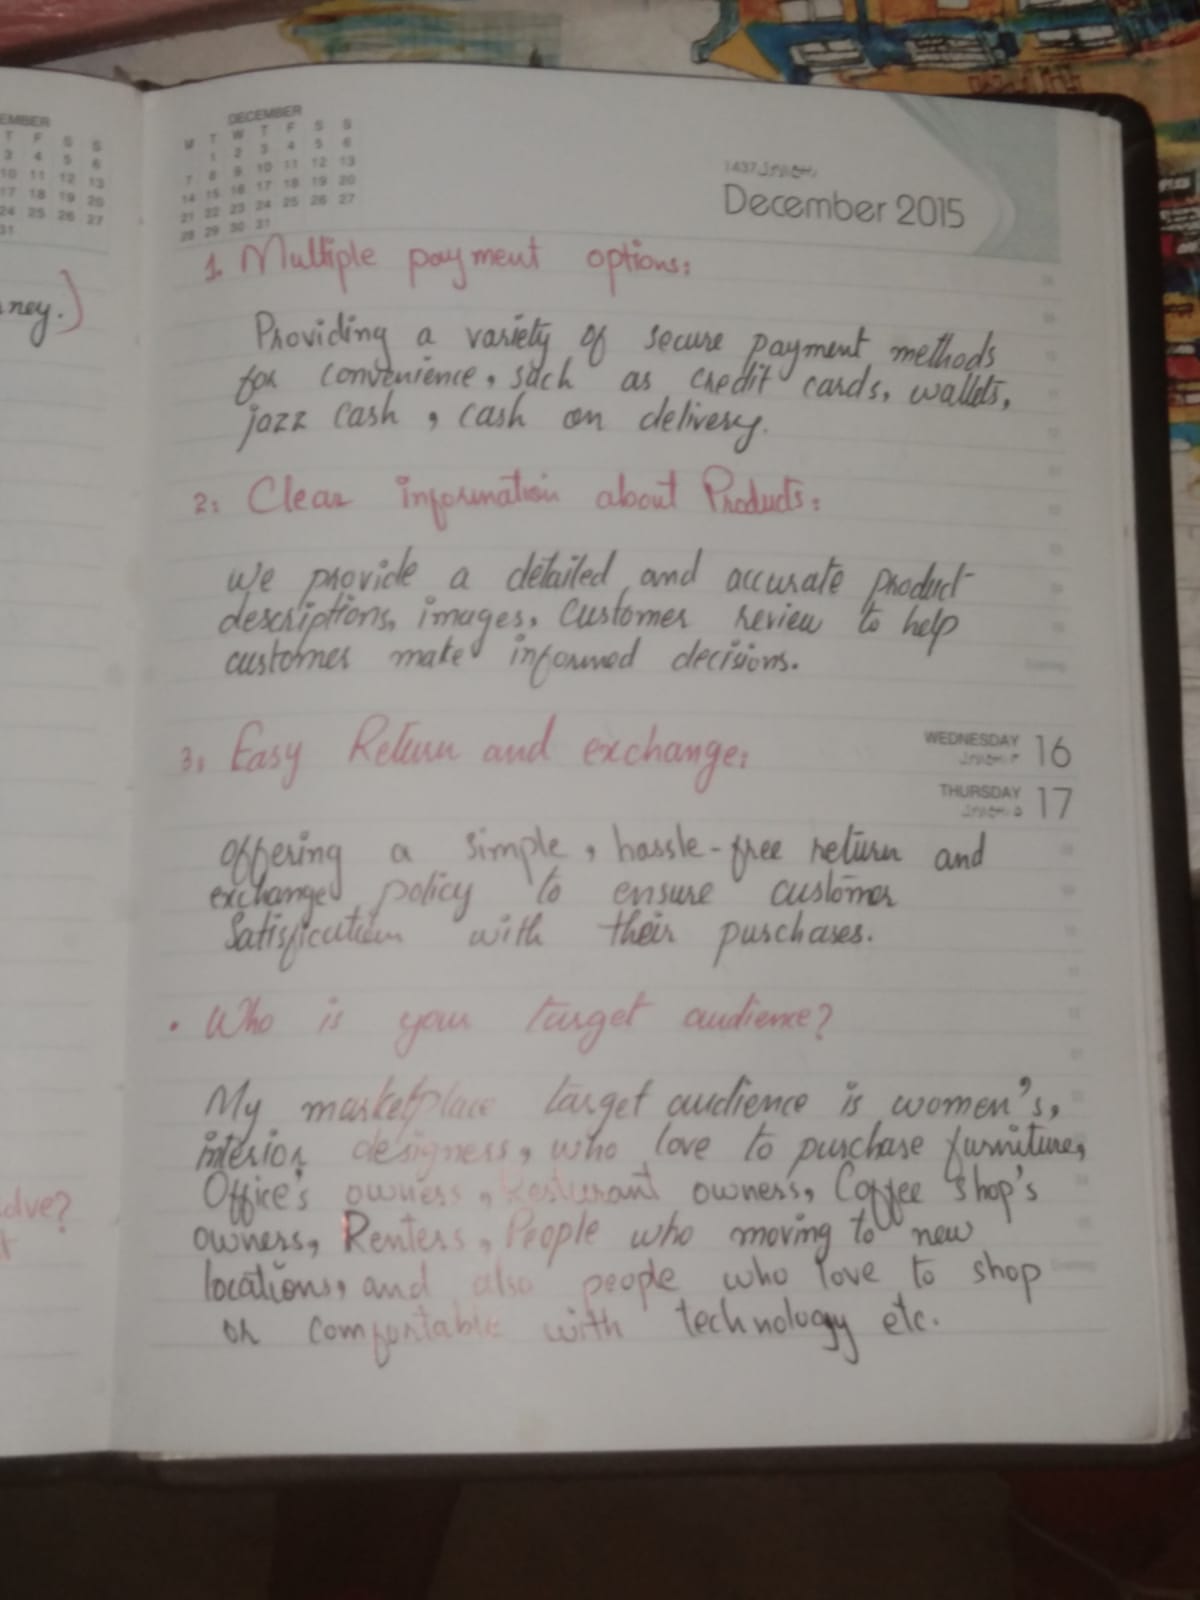 EMBER
T F S S
3 4 5 6
10 11 12 13
17 18 19 20
24 25 26 27
31
ney.)
olve?
DECEMBER
M T W T F S S
1 2 3 4 5 6
7 8 9 10 11 12 13
14 15 16 17 18 19 20
21 22 23 24 25 26 27
28 29 30 31
1437
December 2015
1. Multiple payment options:
Providing a variety of secure payment methods
for convenience, such as credit cards, wallets,
jazz cash, cash on delivery.
2: Clear information about Products:
We provide a detailed and accurate product
descriptions, images, Customer review to help
customer make informed decisions.
3: Easy Return and exchange:
WEDNESDAY 16
THURSDAY 17
Offering a simple, hassle-free return and
exchange policy to ensure customer
Satisfication with their purchases.
• Who is your target audience?
My marketplace target audience is women's,
interior designers, who love to purchase furniture,
Office's owners, Resturant owners, Coffee shop's
owners, Renters, People who moving to new
locations, and also people who love to shop
or comfortable with technology etc.